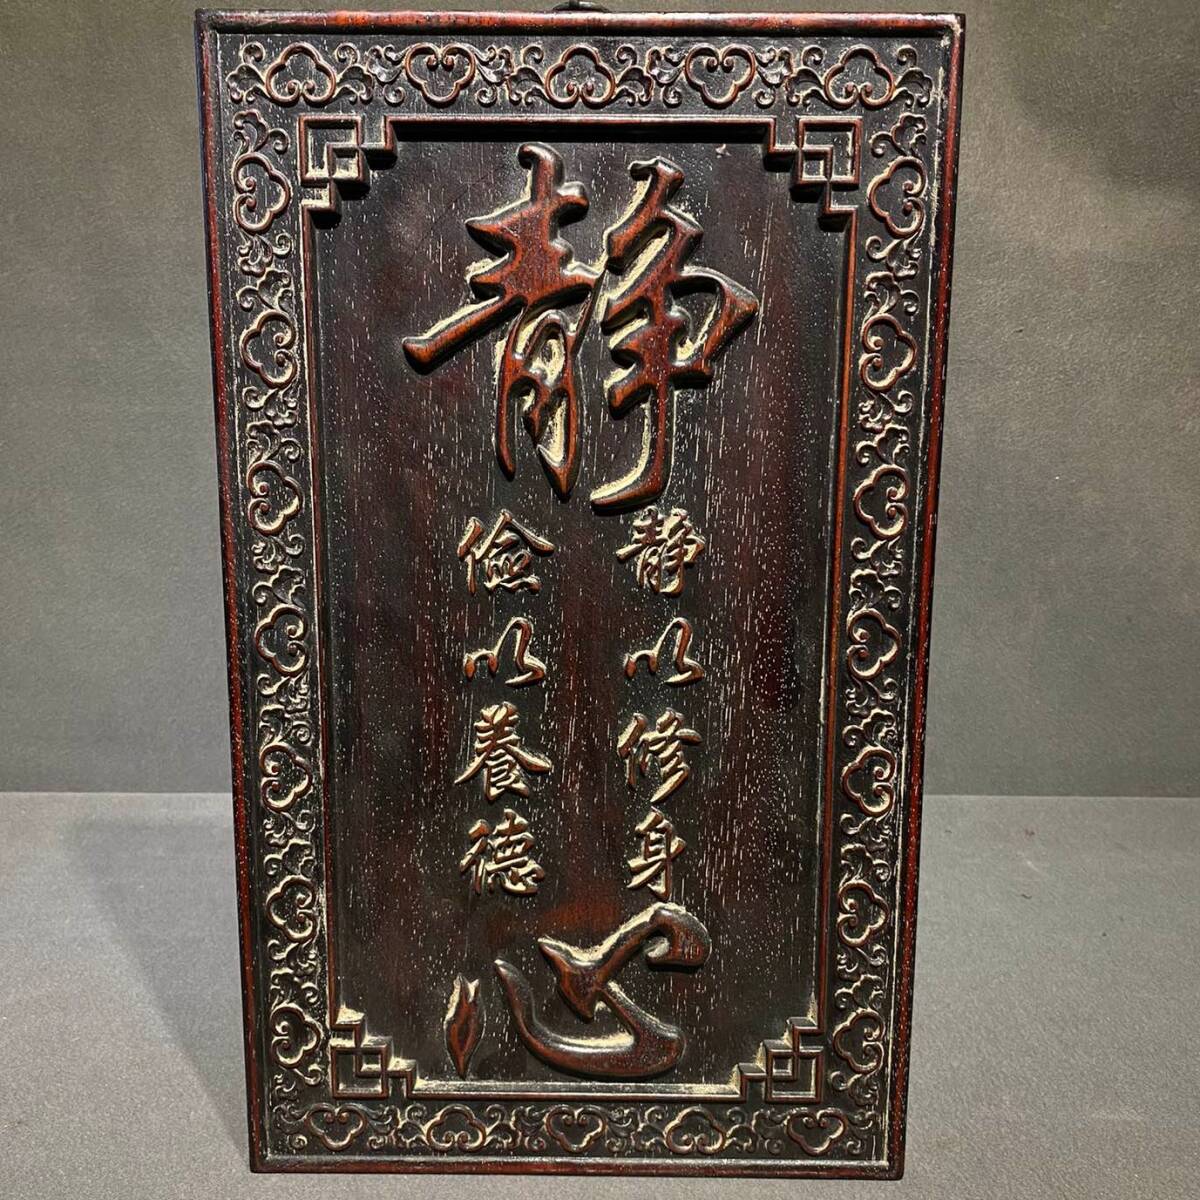 静
静以修身
儉以養德
心